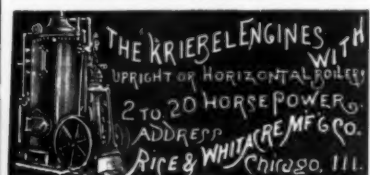 THE KRIEBEL ENGINES WITH
UPRIGHT OR HORIZONTAL BOILERS
2 TO 20 HORSE POWER.
ADDRESS
RICE & WHITACRE MF'G CO.
Chicago, Ill.